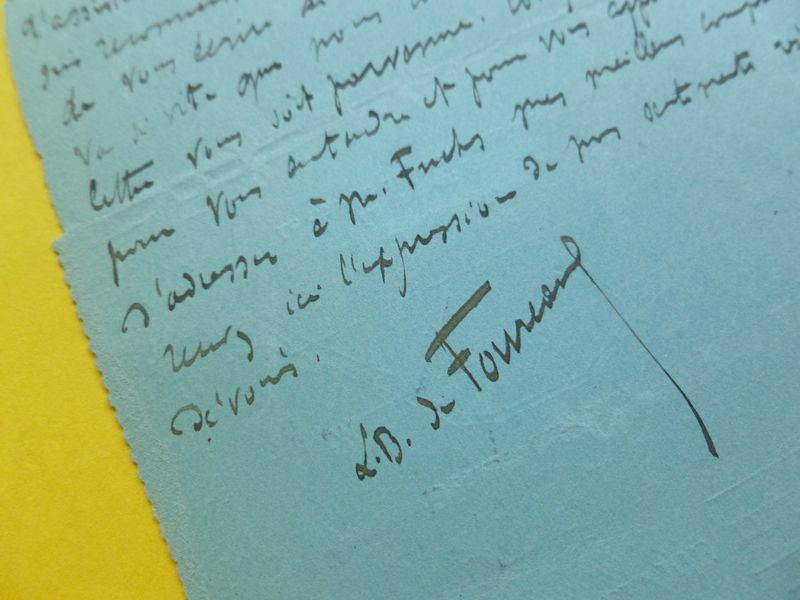 d'assis
suis reconnais
de vous écrire
va si vite que pour
lettre vous soit parvenue.
pour vous entendre et pour vous app
d'adresser à M. Fuchs mes meilleurs comp
ici l'expression de mes sentiments
dévoués.
L.B. de Fourcaud